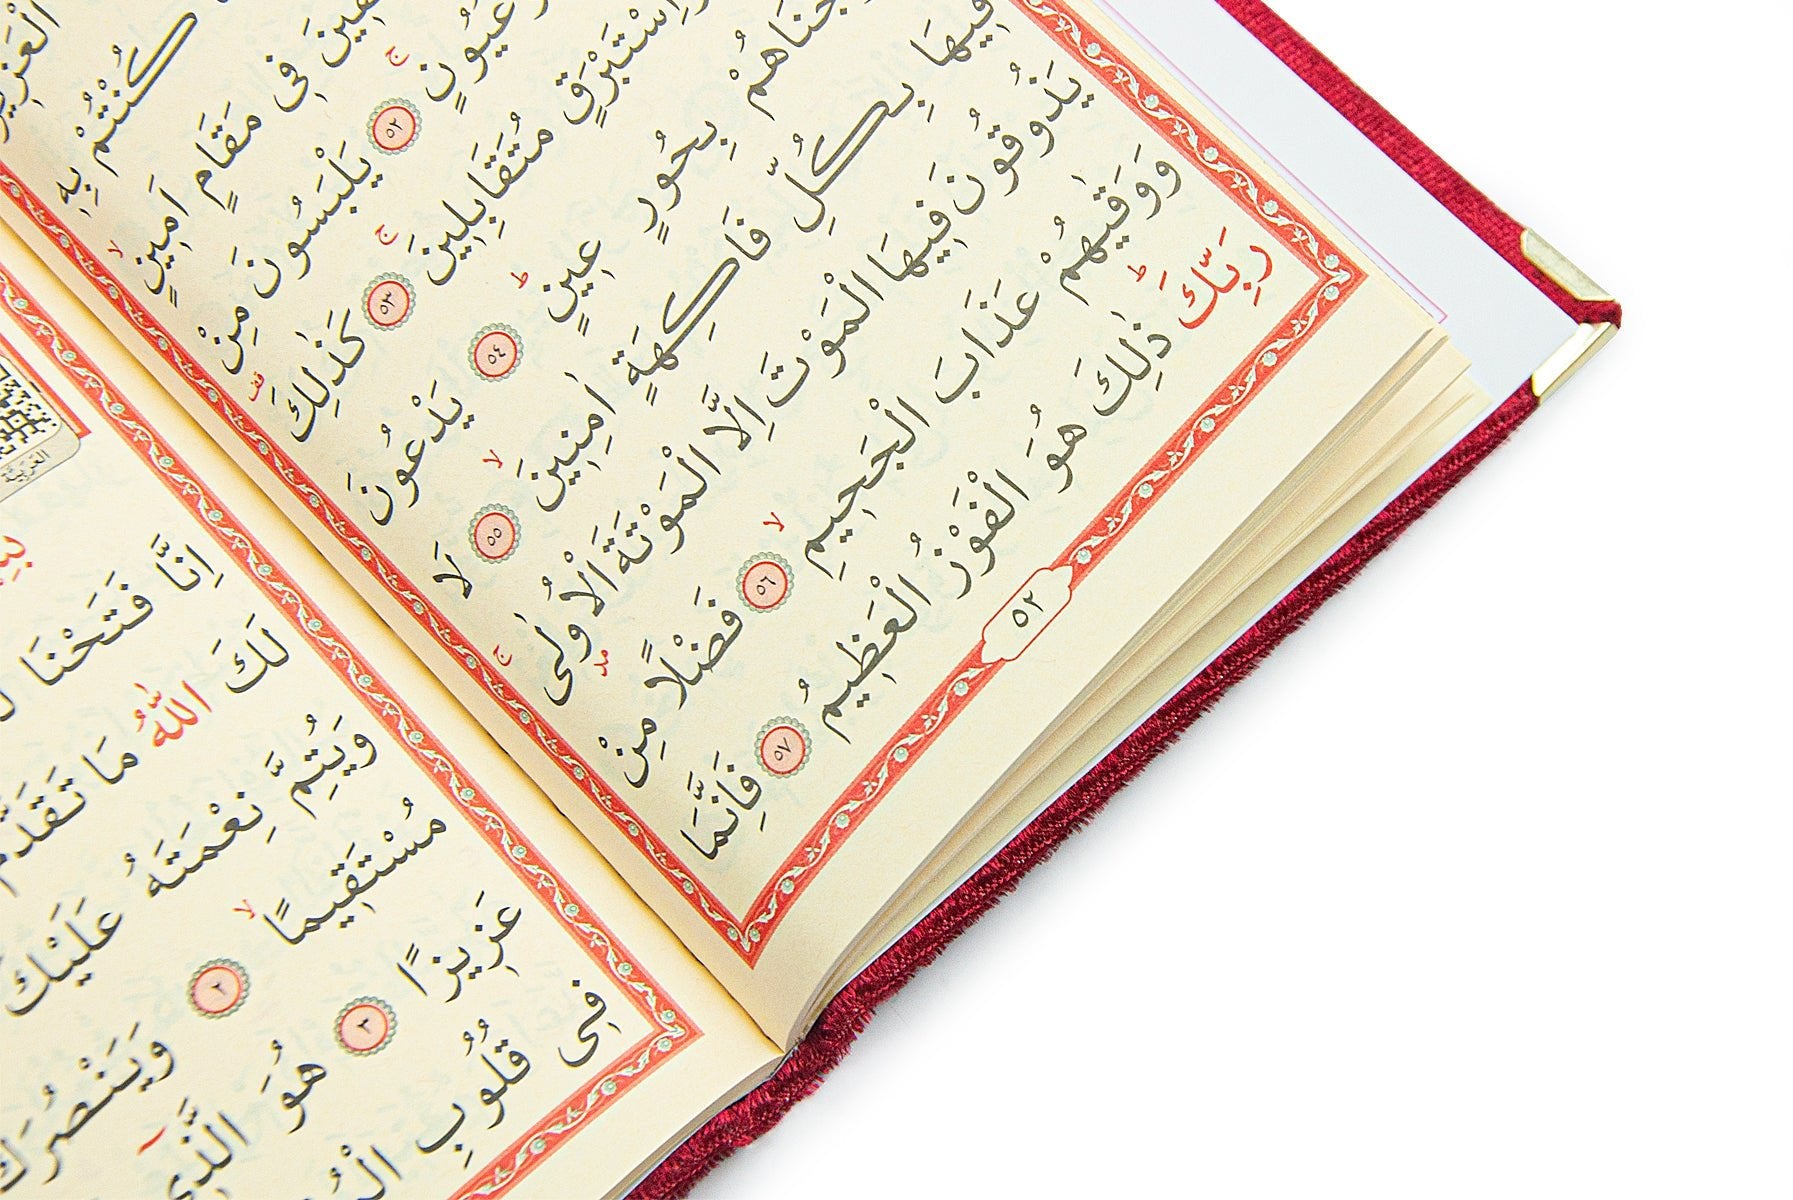 كُنْتُمْ بِهِ
فِى مَقَامٍ اَمِينٍ لا
وَعُيُونٍ ج ٥٢ يَلْبَسُونَ مِنْ
وَاِسْتَبْرَقٍ مُتَقَابِلِينَ ج ٥٣ كَذٰلِكَ قف
بِحُورٍ عِينٍ ط ٥٤ يَدْعُونَ
فِيهَا بِكُلِّ فَاكِهَةٍ اٰمِنِينَ لا ٥٥ لَا
يَذُوقُونَ فِيهَا الْمَوْتَ اِلَّا الْمَوْتَةَ الْاُولٰى ج
وَوَقٰيهُمْ عَذَابَ الْجَحِيمِ لا ٥٦ فَضْلًا مِنْ
رَبِّكَ ط ذٰلِكَ هُوَ الْفَوْزُ الْعَظِيمُ ٥٧ فَاِنَّمَا
٥٢
العربية
اِنَّا فَتَحْنَا
لَكَ اللّٰهُ مَا تَقَدَّمَ
وَيُتِمَّ نِعْمَتَهُ عَلَيْكَ
مُسْتَقِيمًا لا ٢ وَيَنْصُرَكَ
عَزِيزًا ٣ هُوَ الَّذِى
فِى قُلُوبِ